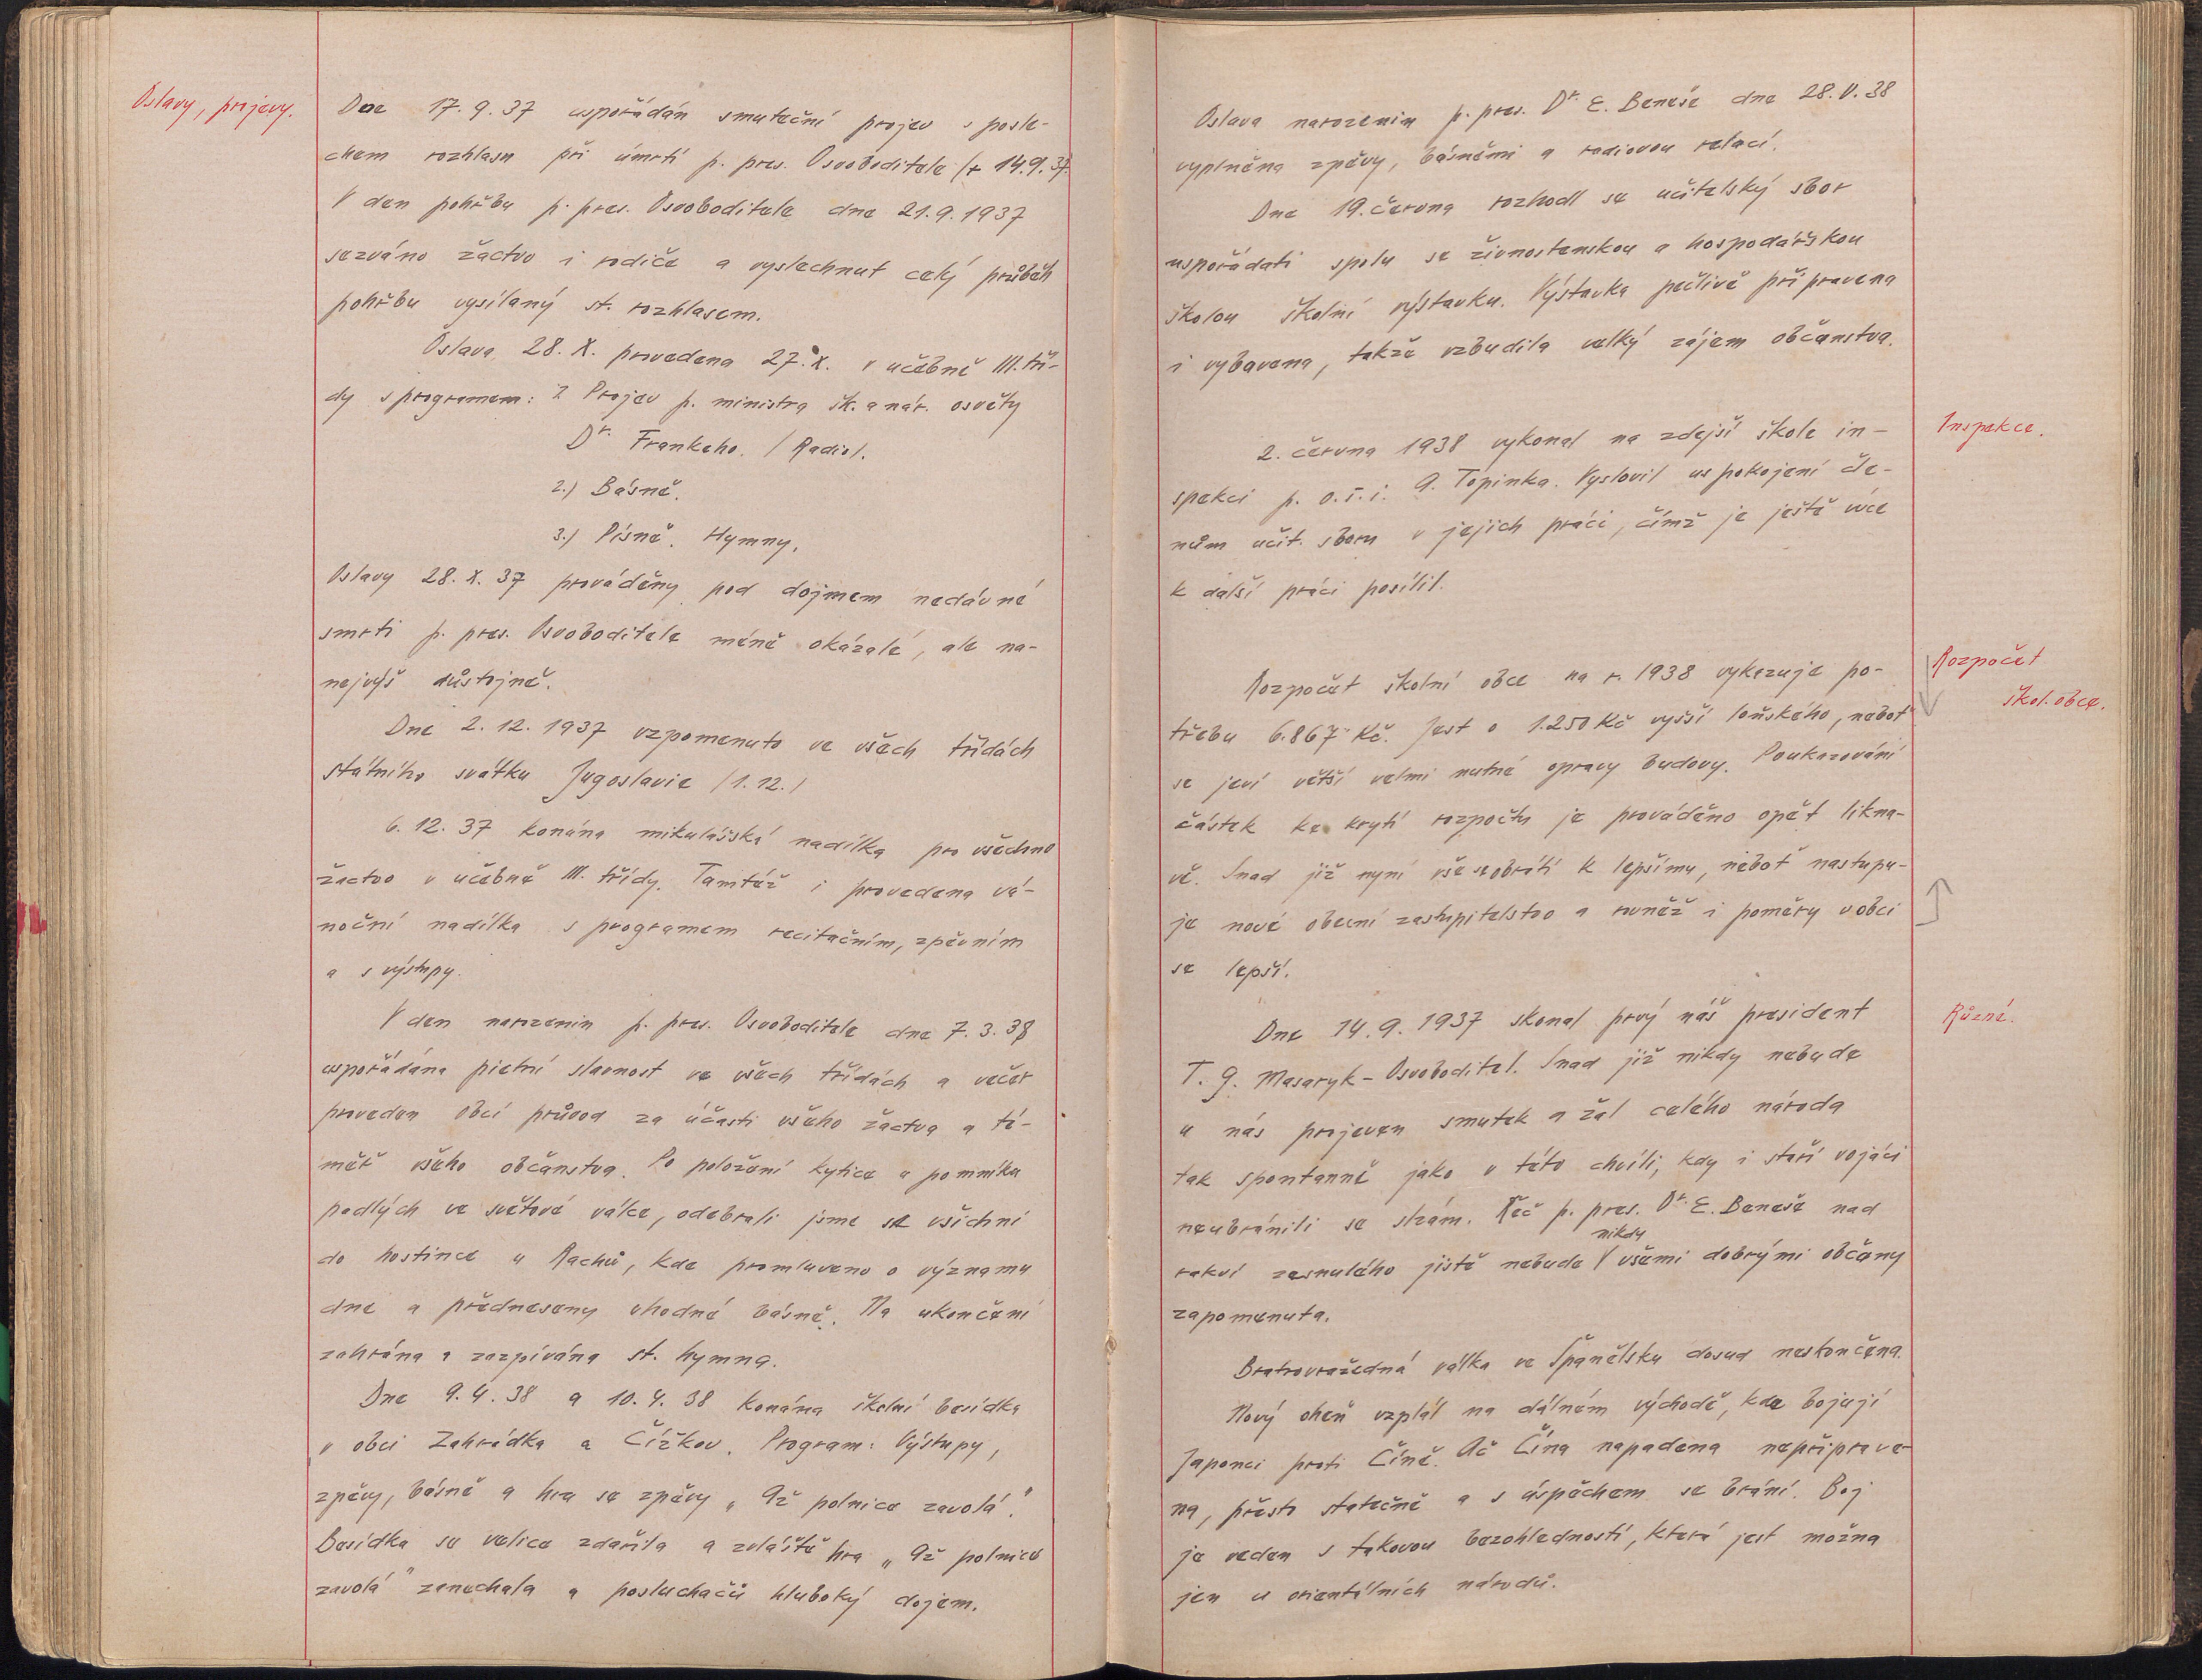 Oslavy, projevy.
Dne 17. 9. 37 uspořádán smuteční projev s posle-
chem rozhlasu při úmrtí p. pres. Osvoboditele (+ 14. 9. 37.
V den pohřbu p. pres. Osvoboditele dne 21. 9. 1937
sezváno žactvo i rodiče a vyslechnut celý průběh
pohřbu vysílaný st. rozhlasem.
Oslava 28. X. provedena 27. X. v učebně III. tří-
dy s programem: 1. Projev p. ministra šk. a nár. osvěty
Dr. Frankeho. /Radio/.
2.) Básně.
3.) Písně. Hymny.
Oslavy 28. X. 37 prováděny pod dojmem nedávné
smrti p. pres. Osvoboditele méně okázalé, ale na-
nejvýš důstojně.
Dne 2. 12. 1937 vzpomenuto ve všech třídách
státního svátku Jugoslavie /1. 12./
6. 12. 37 konána mikulášská nadílka pro všechno
žactvo v učebně III. třídy. Tamtéž i provedena vá-
noční nadílka s programem recitačním, zpěvním
a s výstupy.
V den narozenin p. pres. Osvoboditele dne 7. 3. 38
uspořádána pietní slavnost ve všech třídách a večer
proveden obcí průvod za účasti všeho žactva a té-
měř všeho občanstva. Po položení kytice u pomníku
padlých ve světové válce, odebrali jsme se všichni
do hostince u Rachů, kde promluveno o významu
dne a předneseny vhodné básně. Na ukončení
zahrána a zazpívána st. hymna.
Dne 9. 4. 38 a 10. 4. 38 konána školní besídka
v obci Zahrádka a Čížkov. Program: Výstupy,
zpěvy, básně a hra se zpěvy „Až polnice zavolá".
Besídka se velice zdařila a zvláště hra „Až polnice
zavolá" zanechala u posluchačů hluboký dojem.
Oslava narozenin p. pres. Dr. E. Beneše dne 28. V. 38
vyplněna zpěvy, básněmi a radiovou relací.
Dne 19. června rozhodl se učitelský sbor
uspořádati spolu se živnostenskou a hospodářskou
školou školní výstavku. Výstavka pečlivě připravena
i vybavena, takže vzbudila velký zájem občanstva.
Inspekce.
2. června 1938 vykonal na zdejší škole in-
spekci p. o. š. i. A. Topinka. Vyslovil uspokojení čle-
nům učit. sboru v jejich práci, čímž je ještě více
k další práci posílil.
Rozpočet
škol. obce.
Rozpočet školní obce na r. 1938 vykazuje po-
třebu 6.867 Kč. Jest o 1.250 Kč vyšší loňského, neboť
se jeví větší velmi nutné opravy budovy. Poukazování
částek ke krytí rozpočtu je prováděno opět likna-
vě. Snad již nyní vše se obrátí k lepšímu, neboť nastupu-
je nové obecní zastupitelstvo a rovněž i poměry v obci
se lepší.
Různé.
Dne 14. 9. 1937 skonal prvý náš president
T. G. Masaryk - Osvoboditel. Snad již nikdy nebude
u nás projeven smutek a žal celého národa
tak spontanně jako v této chvíli, kdy i staří vojáci
neubránili se slzám. Řeč p. pres. Dr. E. Beneše nad
nikdy
rakví zesnulého jistě nebude V všemi dobrými občany
zapomenuta.
Bratrovražedná válka ve Španělsku dosud neskončena.
Nový oheň vzplál na dálném východě, kde bojují
Japonci proti Číně. Ač Čína napadena nepřiprave-
na, přesto statečně a s úspěchem se brání. Boj
je veden s takovou bezohledností, která jest možna
jen u orientálních národů.